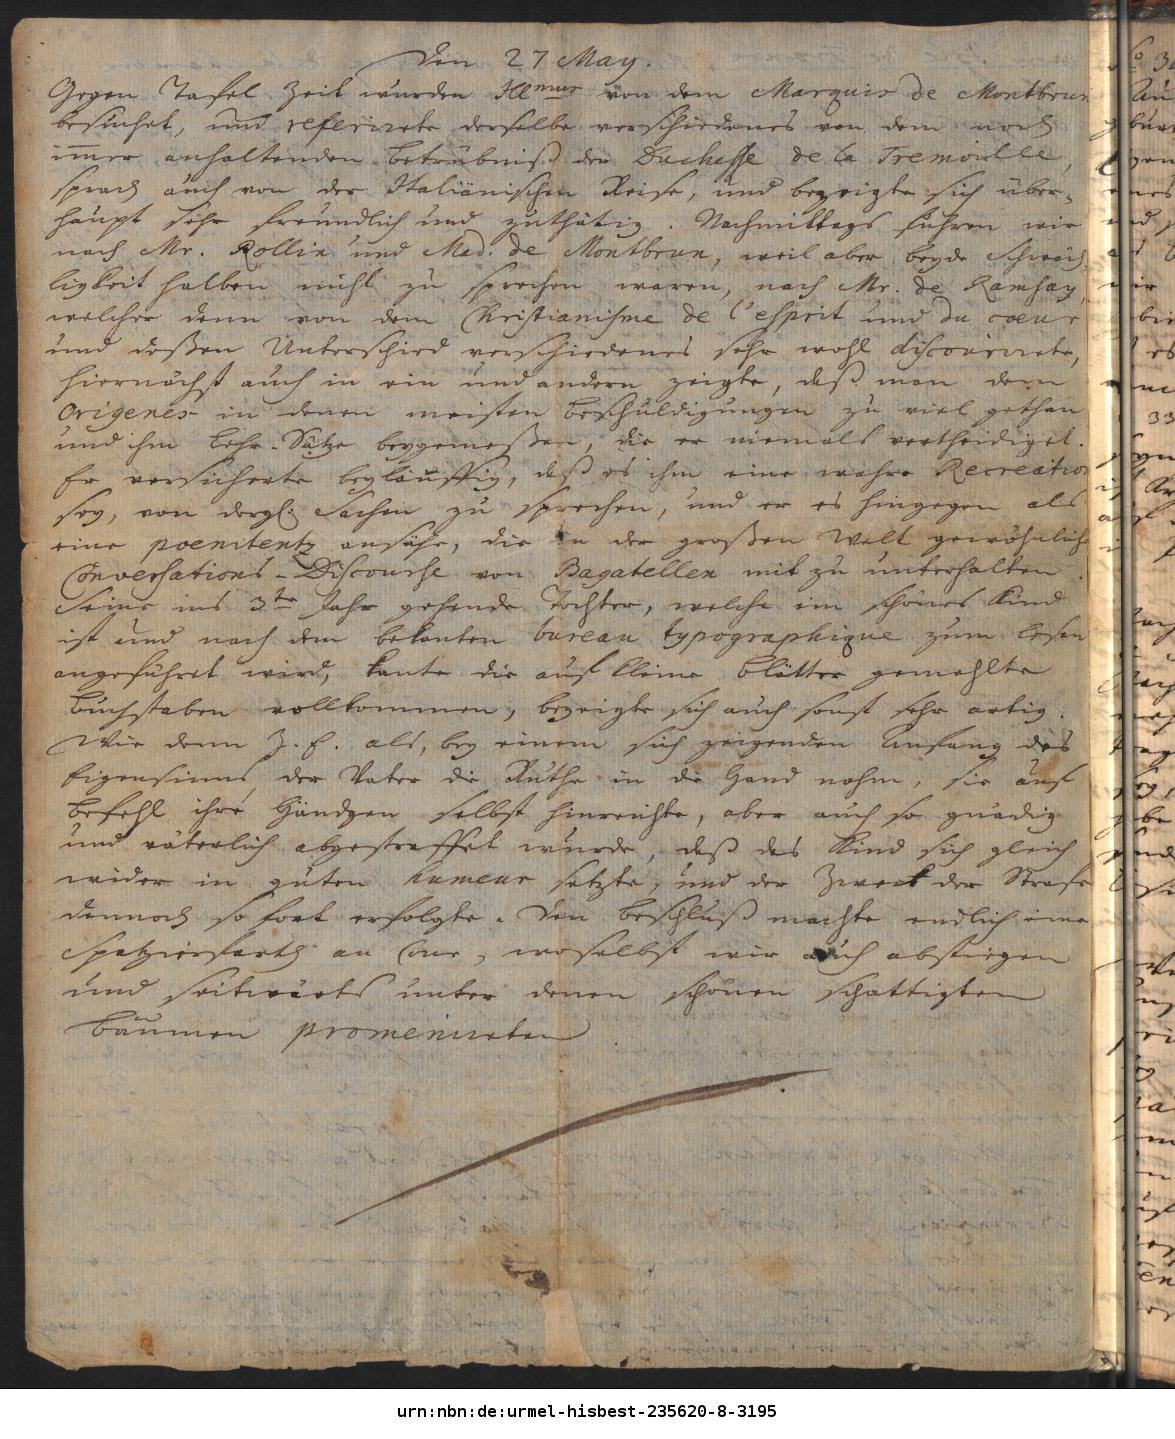 Den 27 May.
Gegen Tafel Zeit wurden Illmus von dem Marquis de Montbrun
besuchet, und referirete derselbe verschiedenes von dem noch
im̄er anhaltenden Betrübniß der Duchesse de la Tremoille,
sprach auch von der Italiänischen Reise, und bezeigte sich über-
haupt sehr freundlich und zuthätig. Nachmittags fuhren wir
nach Mr. Rollin und Mad. de Montbrun, weil aber beyde Schwäch-
ligkeit halben nicht zu sprechen waren, nach Mr. de Ramsay,
welcher denn von dem Christianisme de l'esprit und du coeur
und deßen Unterschied verschiedenes sehr wohl discourirete,
hiernächst auch in ein und andern zeigte, daß man dem
Origenes in denen meisten Beschuldigungen zu viel gethan
und ihm Lehr-Sätze beygemeßen, die er niemals vertheidiget.
Er versicherte beyläuffig, daß es ihm eine wahre Recreation
sey, von dergl. Sachen zu sprechen, und er es hingegen als
eine poenitentz ansähe, die in der großen Welt gewöhnliche
Conversations-Discourse von Bagatellen mit zu unterhalten.
Seine ins 3te Jahr gehende Tochter, welche ein schönes Kind
ist und nach dem bekanten bureau typographique zum lesen
angeführet wird, kante die auf kleine Blätter gemahlte
Buchstaben vollkommen, bezeigte sich auch sonst sehr artig.
Wie denn Z. E. als, bey einem sich zeigenden Anfang des
Eigensinns, der Vater die Ruthe in die Hand nahm, sie auf
Befehl ihre Händgen selbst hinreichte, aber auch so gnädig
und väterlich abgestraffet wurde, daß das Kind sich gleich
wider in guten humeur setzte, und der Zweck der Strafe
dennoch so fort erfolgte. Den Beschluß machte endlich eine
Spatzierfarth au Cour, woselbst wir auch abstiegen
und seitwärts unter denen schönen schattigten
Bäumen promenireten.
urn:nbn:de:urmel-hisbest-235620-8-3195